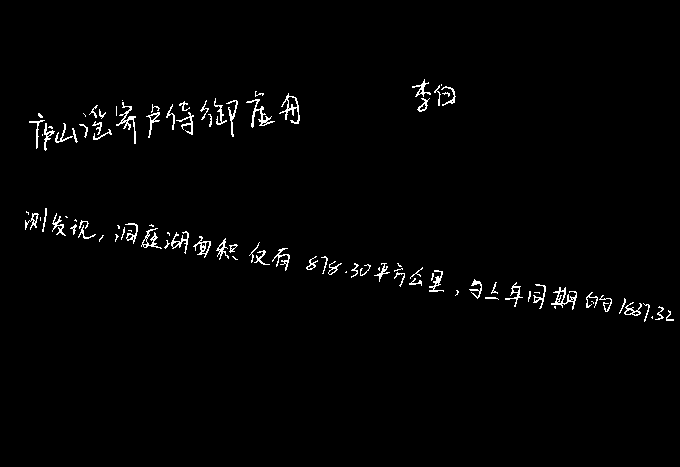 庐山谣寄卢侍御虚舟 李白
测发现，洞庭湖面积仅有878.30平方公里，与上年同期的1837.32